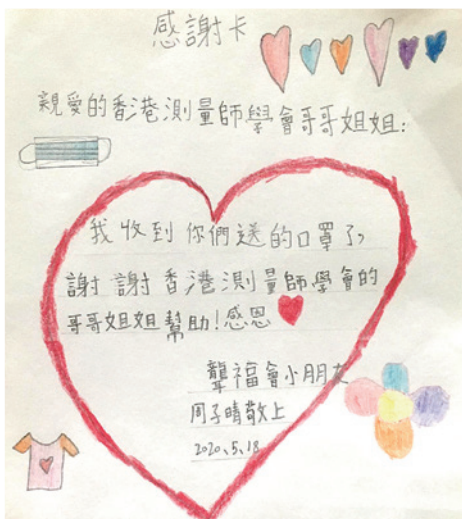 感謝卡
親愛的香港測量師學會哥哥姐姐:
我收到你們送的口罩了,
謝謝香港測量師學會的
哥哥姐姐幫助!感恩
聾福會小朋友
周子晴敬上
2020.5.18